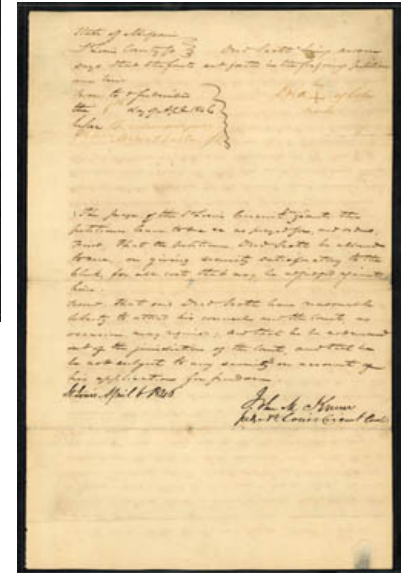 State of Missouri
St Louis County Ss } Dred Scott being sworn
says that the facts set forth in the foregoing petition
are true
Sworn to & subscribed
the 6th day of April 1846
before
his
Dred + Scott
mark
The judge of the St Louis Circuit grants the
petitioner leave to sue as prayed for, and orders,
First, That the petitioner, Dred Scott be allowed
to sue, on giving security satisfactory to the
Clerk, for all costs that may be adjudged against
him.
Second, that said Dred Scott have reasonable
liberty to attend his counsel and the court, as
occasion may require, and that he be not removed
out of the jurisdiction of the court, and that he
be not subject to any severity on account of
his application for freedom.
St Louis April 6 1846
John M. Krum
judge St Louis Circuit Court